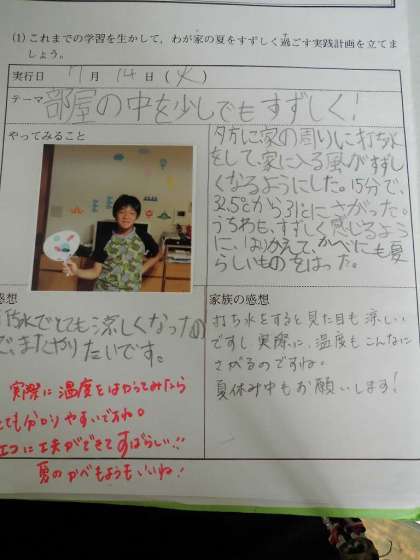 (1) これまでの学習を生かして，わが家の夏をすずしく過ごす実践計画を立てま
しょう。
実行日 7月 14日 (火)
テーマ 部屋の中を少しでもすずしく！
やってみること
夕方に家の周りに打ち水
をして、家に入る風がすずし
くなるようにした。15分で、
32.5℃から31℃にさがった。
うちわも、すずしく感じるよう
に、はりかえて、かべにも夏
らしいものをはった。
感想
打ち水でとても涼しくなったの
で、またやりたいです。
実際に温度をはかってみたら
とても分かりやすいですね。
エコに工夫ができてすばらしい!!
夏のかべもようもいいね!
家族の感想
打ち水をすると見た目も涼しい
ですし実際に、温度もこんなに
さがるのですね。
夏休み中もお願いします!